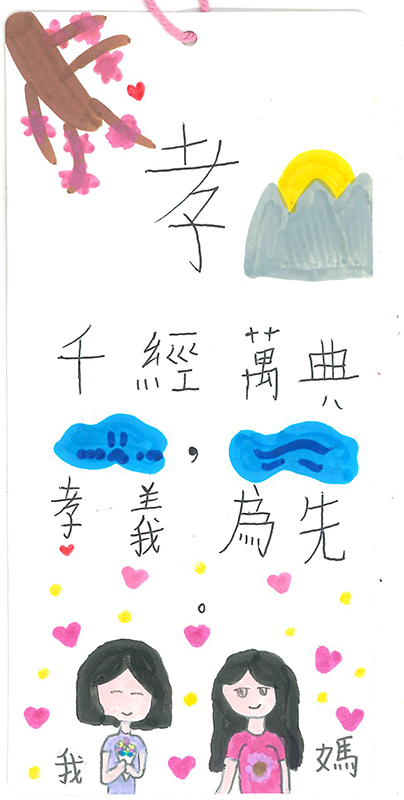 孝
千經萬典
，
孝義為先
。
我 媽